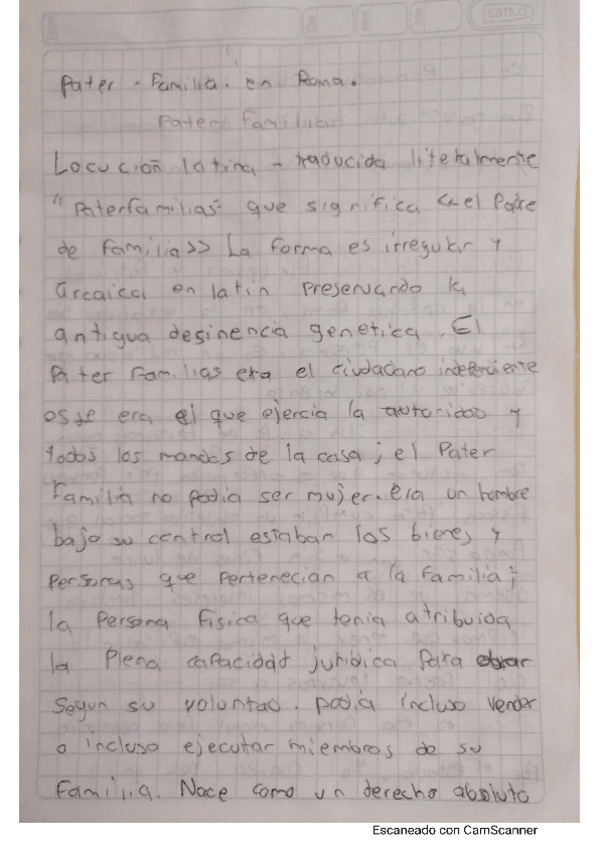 ESTILO
Pater - Familia. en Roma.
Pater Familia
Locución latina - traducida literalmente
"Paterfamilias" que significa <<el Padre
de familia>> La forma es irregular y
arcaica en latin preservando la
antigua desinencia genetica. El
Pater Familias era el ciudadano independiente
era el que ejercia la autoridad y
todos los mandos de la casa; el Pater
Familia no podia ser mujer. era un hombre
bajo su control estaban los bienes y
Personas que Pertenecian a la familia;
la Persona Fisica que tenia atribuida
la Plena capacidad juridica Para obrar
Segun su voluntad. podia incluso vender
o incluso ejecutar miembros de su
Familia. Nace como un derecho absoluto
Escaneado con CamScanner